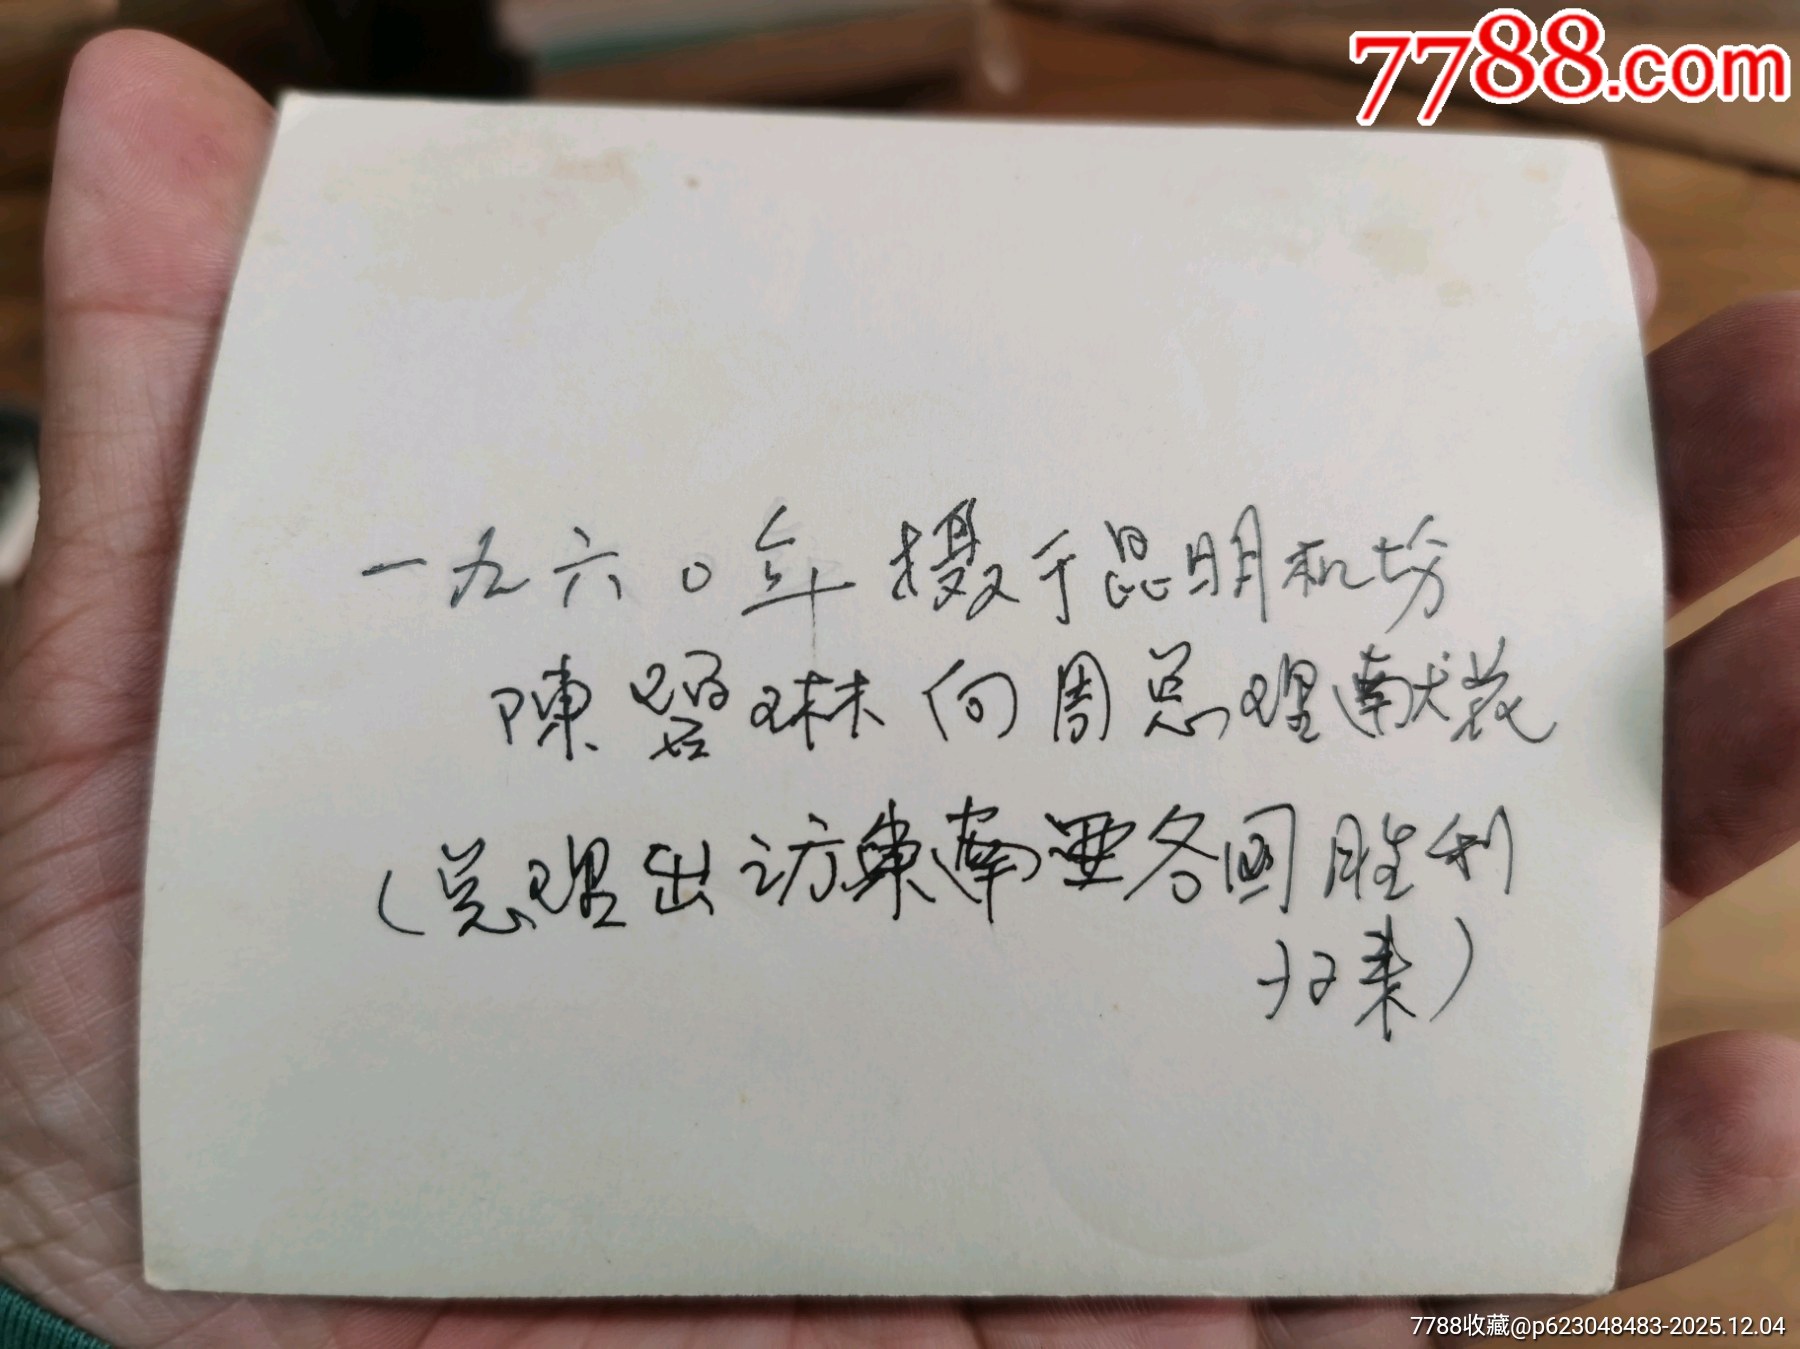 7788.com
一九六〇年摄于昆明机场
陳 琳向周总理献花
(总理出访東南亚各国胜利
归来)
7788收藏@p623048483-2025.12.04